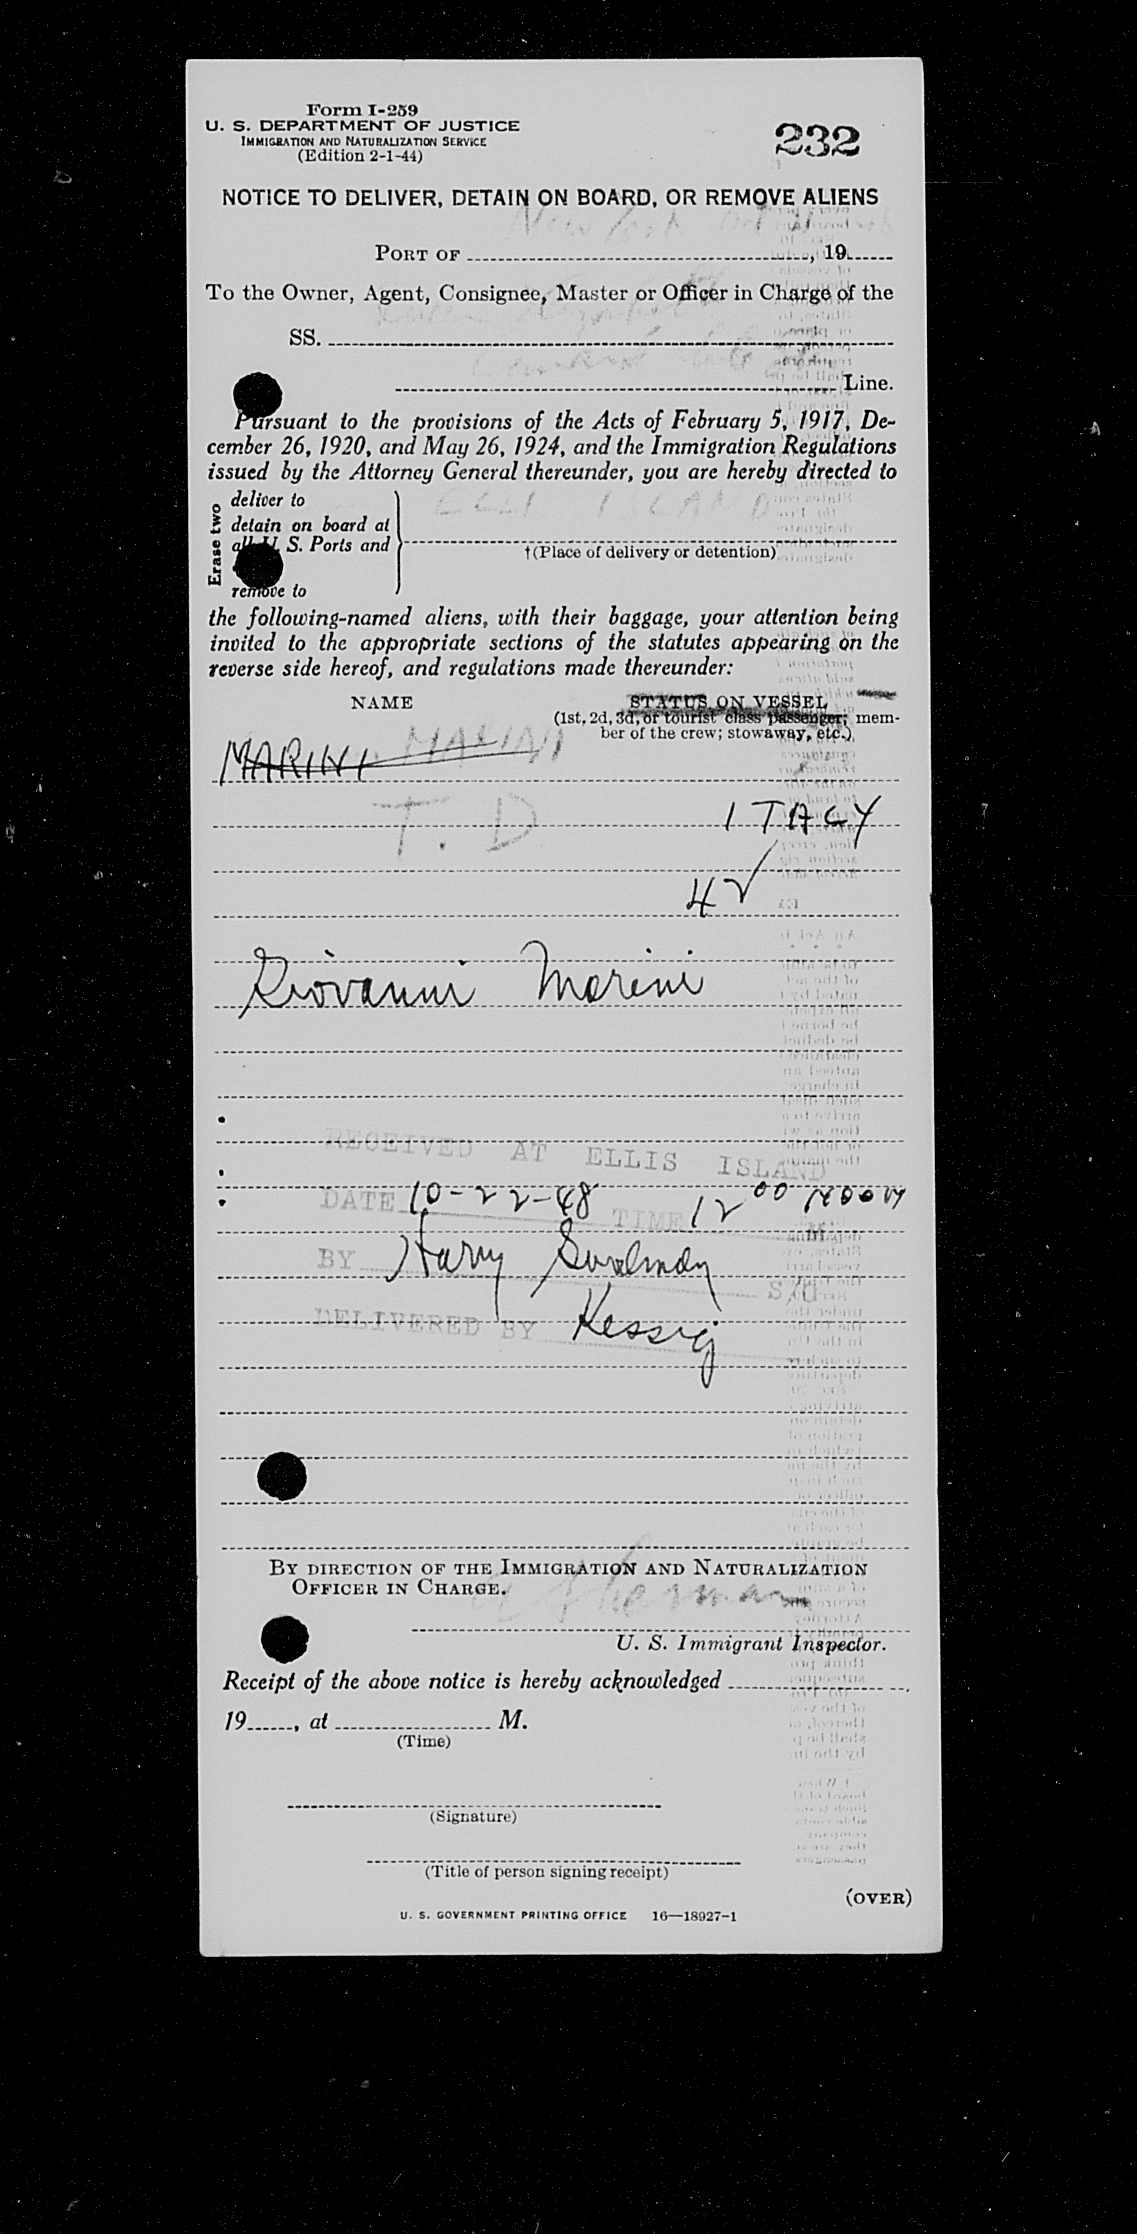 Form I-259
U. S. DEPARTMENT OF JUSTICE
IMMIGRATION AND NATURALIZATION SERVICE
(Edition 2-1-44)
232
NOTICE TO DELIVER, DETAIN ON BOARD, OR REMOVE ALIENS
New York
PORT OF , 19
To the Owner, Agent, Consignee, Master or Officer in Charge of the
SS.
Line.
Pursuant to the provisions of the Acts of February 5, 1917, De-
cember 26, 1920, and May 26, 1924, and the Immigration Regulations
issued by the Attorney General thereunder, you are hereby directed to
Erase two
deliver to
detain on board at
all U. S. Ports and
remove to
ELLI ISLAND
†(Place of delivery or detention)
the following-named aliens, with their baggage, your attention being
invited to the appropriate sections of the statutes appearing on the
reverse side hereof, and regulations made thereunder:
NAME
STATUS ON VESSEL
(1st, 2d, 3d, or tourist class passenger; mem-
ber of the crew; stowaway, etc.)
MARINI MARINI
T. D
ITALY
42
Giovanni Marini
RECEIVED AT ELLIS ISLAND
DATE 10-22-48 TIME 12 00 noon M
BY Harry
DELIVERED BY Kessig
BY DIRECTION OF THE IMMIGRATION AND NATURALIZATION
OFFICER IN CHARGE.
U. S. Immigrant Inspector.
Receipt of the above notice is hereby acknowledged
19 , at M.
(Time)
(Signature)
(Title of person signing receipt)
(OVER)
U. S. GOVERNMENT PRINTING OFFICE 16—18927-1